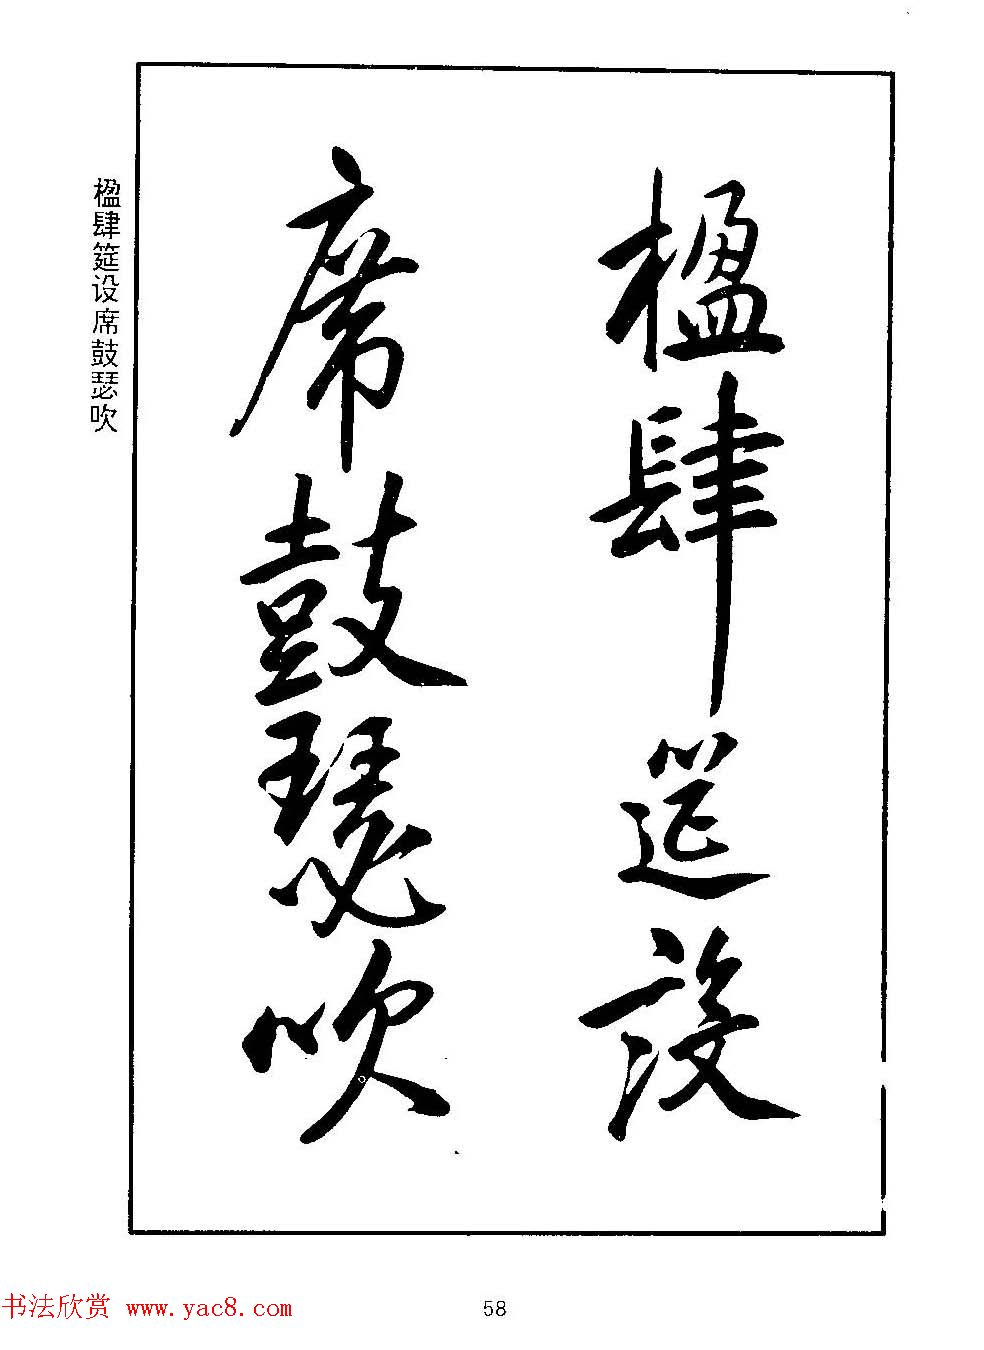 楹肆筵设
席鼓瑟吹
楹肆筵设席鼓瑟吹
书法欣赏 www.yac8.com
58